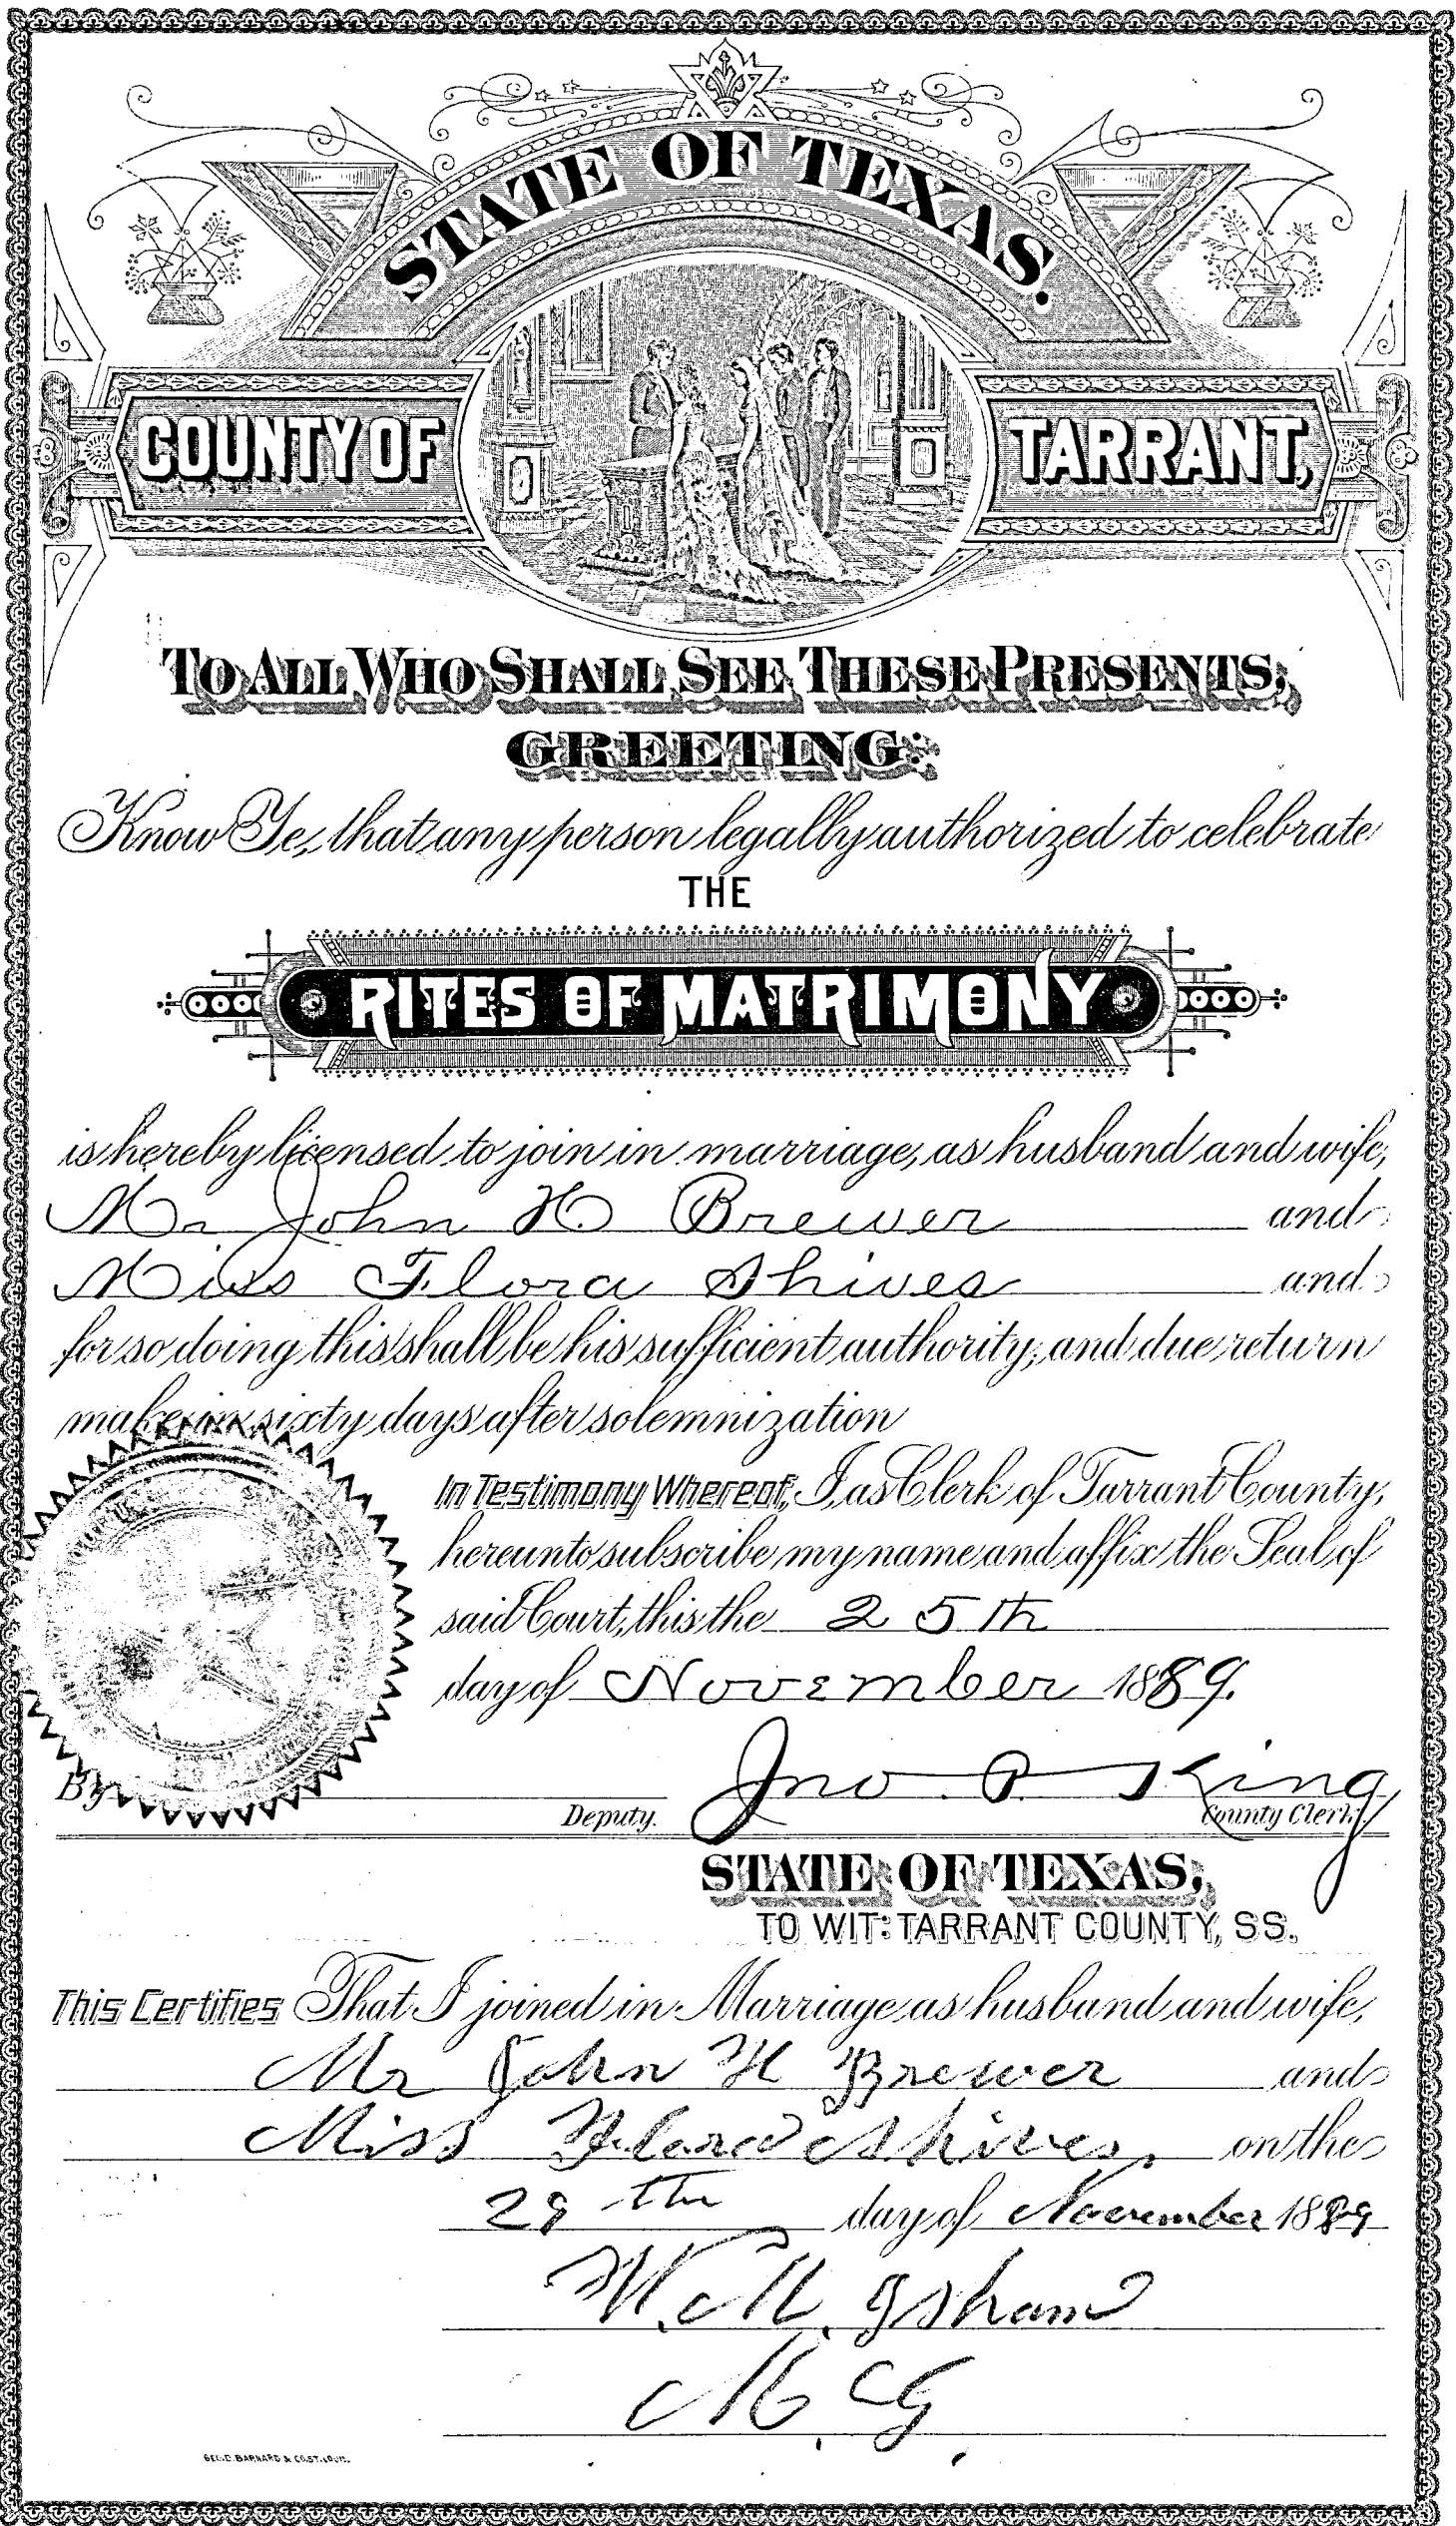 STATE OF TEXAS.
COUNTY OF TARRANT,
TO ALL WHO SHALL SEE THESE PRESENTS,
GREETING:
Know Ye, that any person legally authorized to celebrate
THE
RITES OF MATRIMONY
is hereby licensed to join in marriage, as husband and wife,
Mr John H Brewer and
Miss Flora Shives and
for so doing this shall be his sufficient authority, and due return
make in sixty days after solemnization
In Testimony Whereof, I, as Clerk of Tarrant County,
hereunto subscribe my name and affix the Seal of
said Court, this the 25th
day of November 1889.
By
Deputy. Jno. P. King County Clerk.
STATE OF TEXAS,
TO WIT: TARRANT COUNTY, SS.
This Certifies That I joined in Marriage as husband and wife,
Mr John H Brewer and
Miss Flora Shives, on the
29th day of November 1889
W. M. Isham
M. G.
GEO. D. BARNARD & CO. ST. LOUIS.